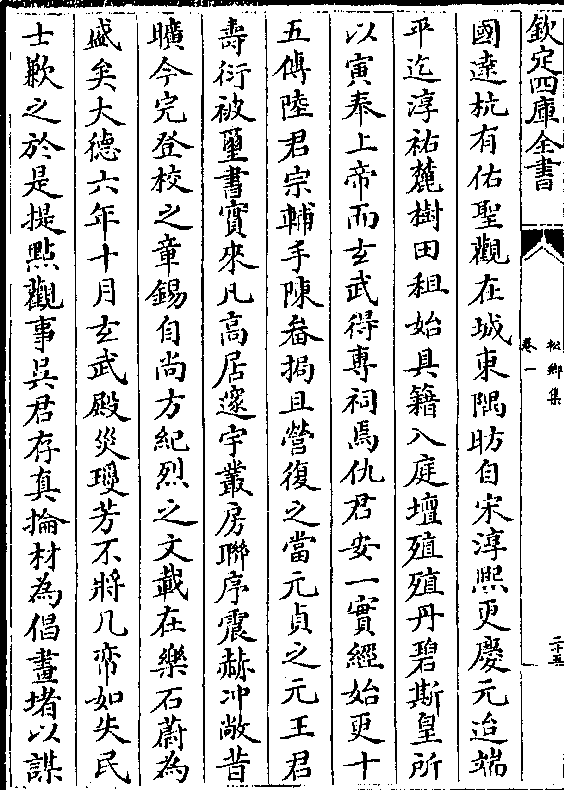 欽定四庫全書
松鄉集
卷一
二十五
國逵杭有佑聖觀在城東隅昉自宋淳熙更慶元迨端
平迄淳祐麓樹田租始具籍入庭壇殖殖丹碧斯皇所
以寅奉上帝而玄武得専祠焉仇君安一實經始更十
五傳陸君宗輔手陳畚挶且營復之當元貞之元王君
壽衍被璽書實來凡高居邃宇叢房聯序震赫冲敞昔
曠今完登校之章錫自尚方紀烈之文載在樂石蔚為
盛矣大德六年十月玄武殿災璁芳不將几帟如失民
士歎之於是提點觀事吳君存真掄材為倡畫堵以謀